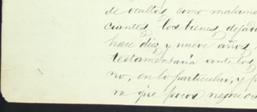 de ocultos como malamen
ciantes, los bienes, dejan
hace diez y nueve años,
testamentaria ante los
no, en lo particular, y p
n que pocos